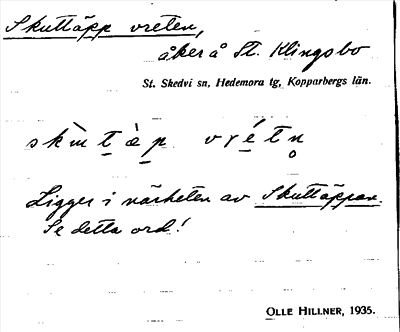 Skuttäpp vreten,
åker å St. Klingsbo
St. Skedvi sn, Hedemora tg, Kopparbergs län.
vrétn
Ligger i närheten av Skuttäppan.
Se detta ord!
OLLE HILLNER, 1935.